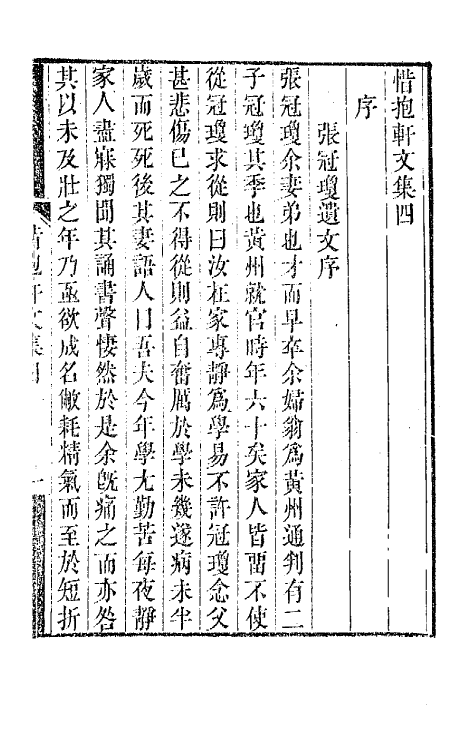 惜抱軒文集四
序
張冠瓊遺文序
張冠瓊余妻弟也才而早卒余婦翁爲黃州通判有二
子冠瓊其季也黃州就官時年六十矣家人皆畱不使
從冠瓊求從則曰汝在家專靜爲學易不許冠瓊念父
甚悲傷已之不得從則益自奮厲於學未幾遂病未半
歲而死死後其妻語人曰吾夫今年學尢勤苦每夜靜
家人盡寐獨聞其誦書聲悽然於是余旣痛之而亦咎
其以未及壯之年乃亟欲成名敝耗精氣而至於短折
惜抱軒文集四
一